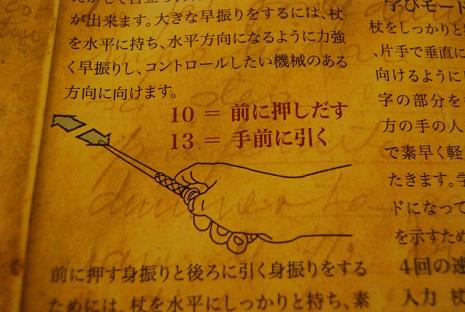 が出来ます。大きな早振りをするには、杖
を水平に持ち、水平方向になるように力強
く早振りし、コントロールしたい機械のある
方向に向けます。
10 = 前に押しだす
13 = 手前に引く
前に押す身振りと後ろに引く身振りをする
ためには、杖を水平にしっかりと持ち、素
学びモード
杖をしっかりと
、片手で垂直に
向けるように
字の部分を
方の手の人
で素早く軽
たきます。学
ドになって
を示すため
4回の速
入力 杖